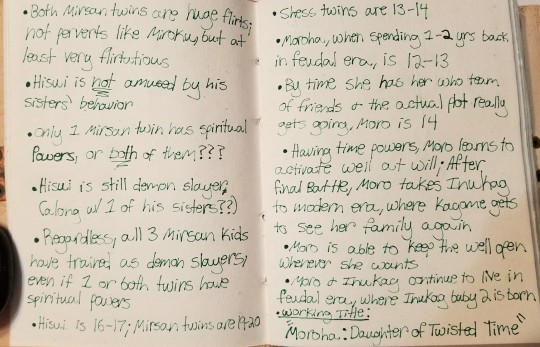 • Both Mirsan twins are huge flirts;
not perverts like Miroku, but at
least very flirtatious
• Hisui is not amused by his
sisters' behavior
• Only 1 Mirsan twin has spiritual
powers, or both of them???
• Hisui is still demon slayer,
(along w/ 1 of his sisters??)
• Regardless, all 3 Mirsan kids
have trained as demon slayers,
even if 1 or both twins have
spiritual powers
• Hisui is 16-17; Mirsan twins are 19-20
• Shess twins are 13-14
• Moroha, when spending 1-2 yrs back
in feudal era, is 12-13
• By time she has her who team
of friends & the actual plot really
gets going, Moro is 14
• Having time powers, Moro learns to
activate well at will; After
final Battle, Moro takes Inukag
to modern era, where Kagome gets
to see her family again
• Moro is able to keep the well open
whenever she wants
• Moro & Inukag continue to live in
feudal era, where Inukag baby 2 is born
• Working Title:
"Moroha: Daughter of Twisted Time"